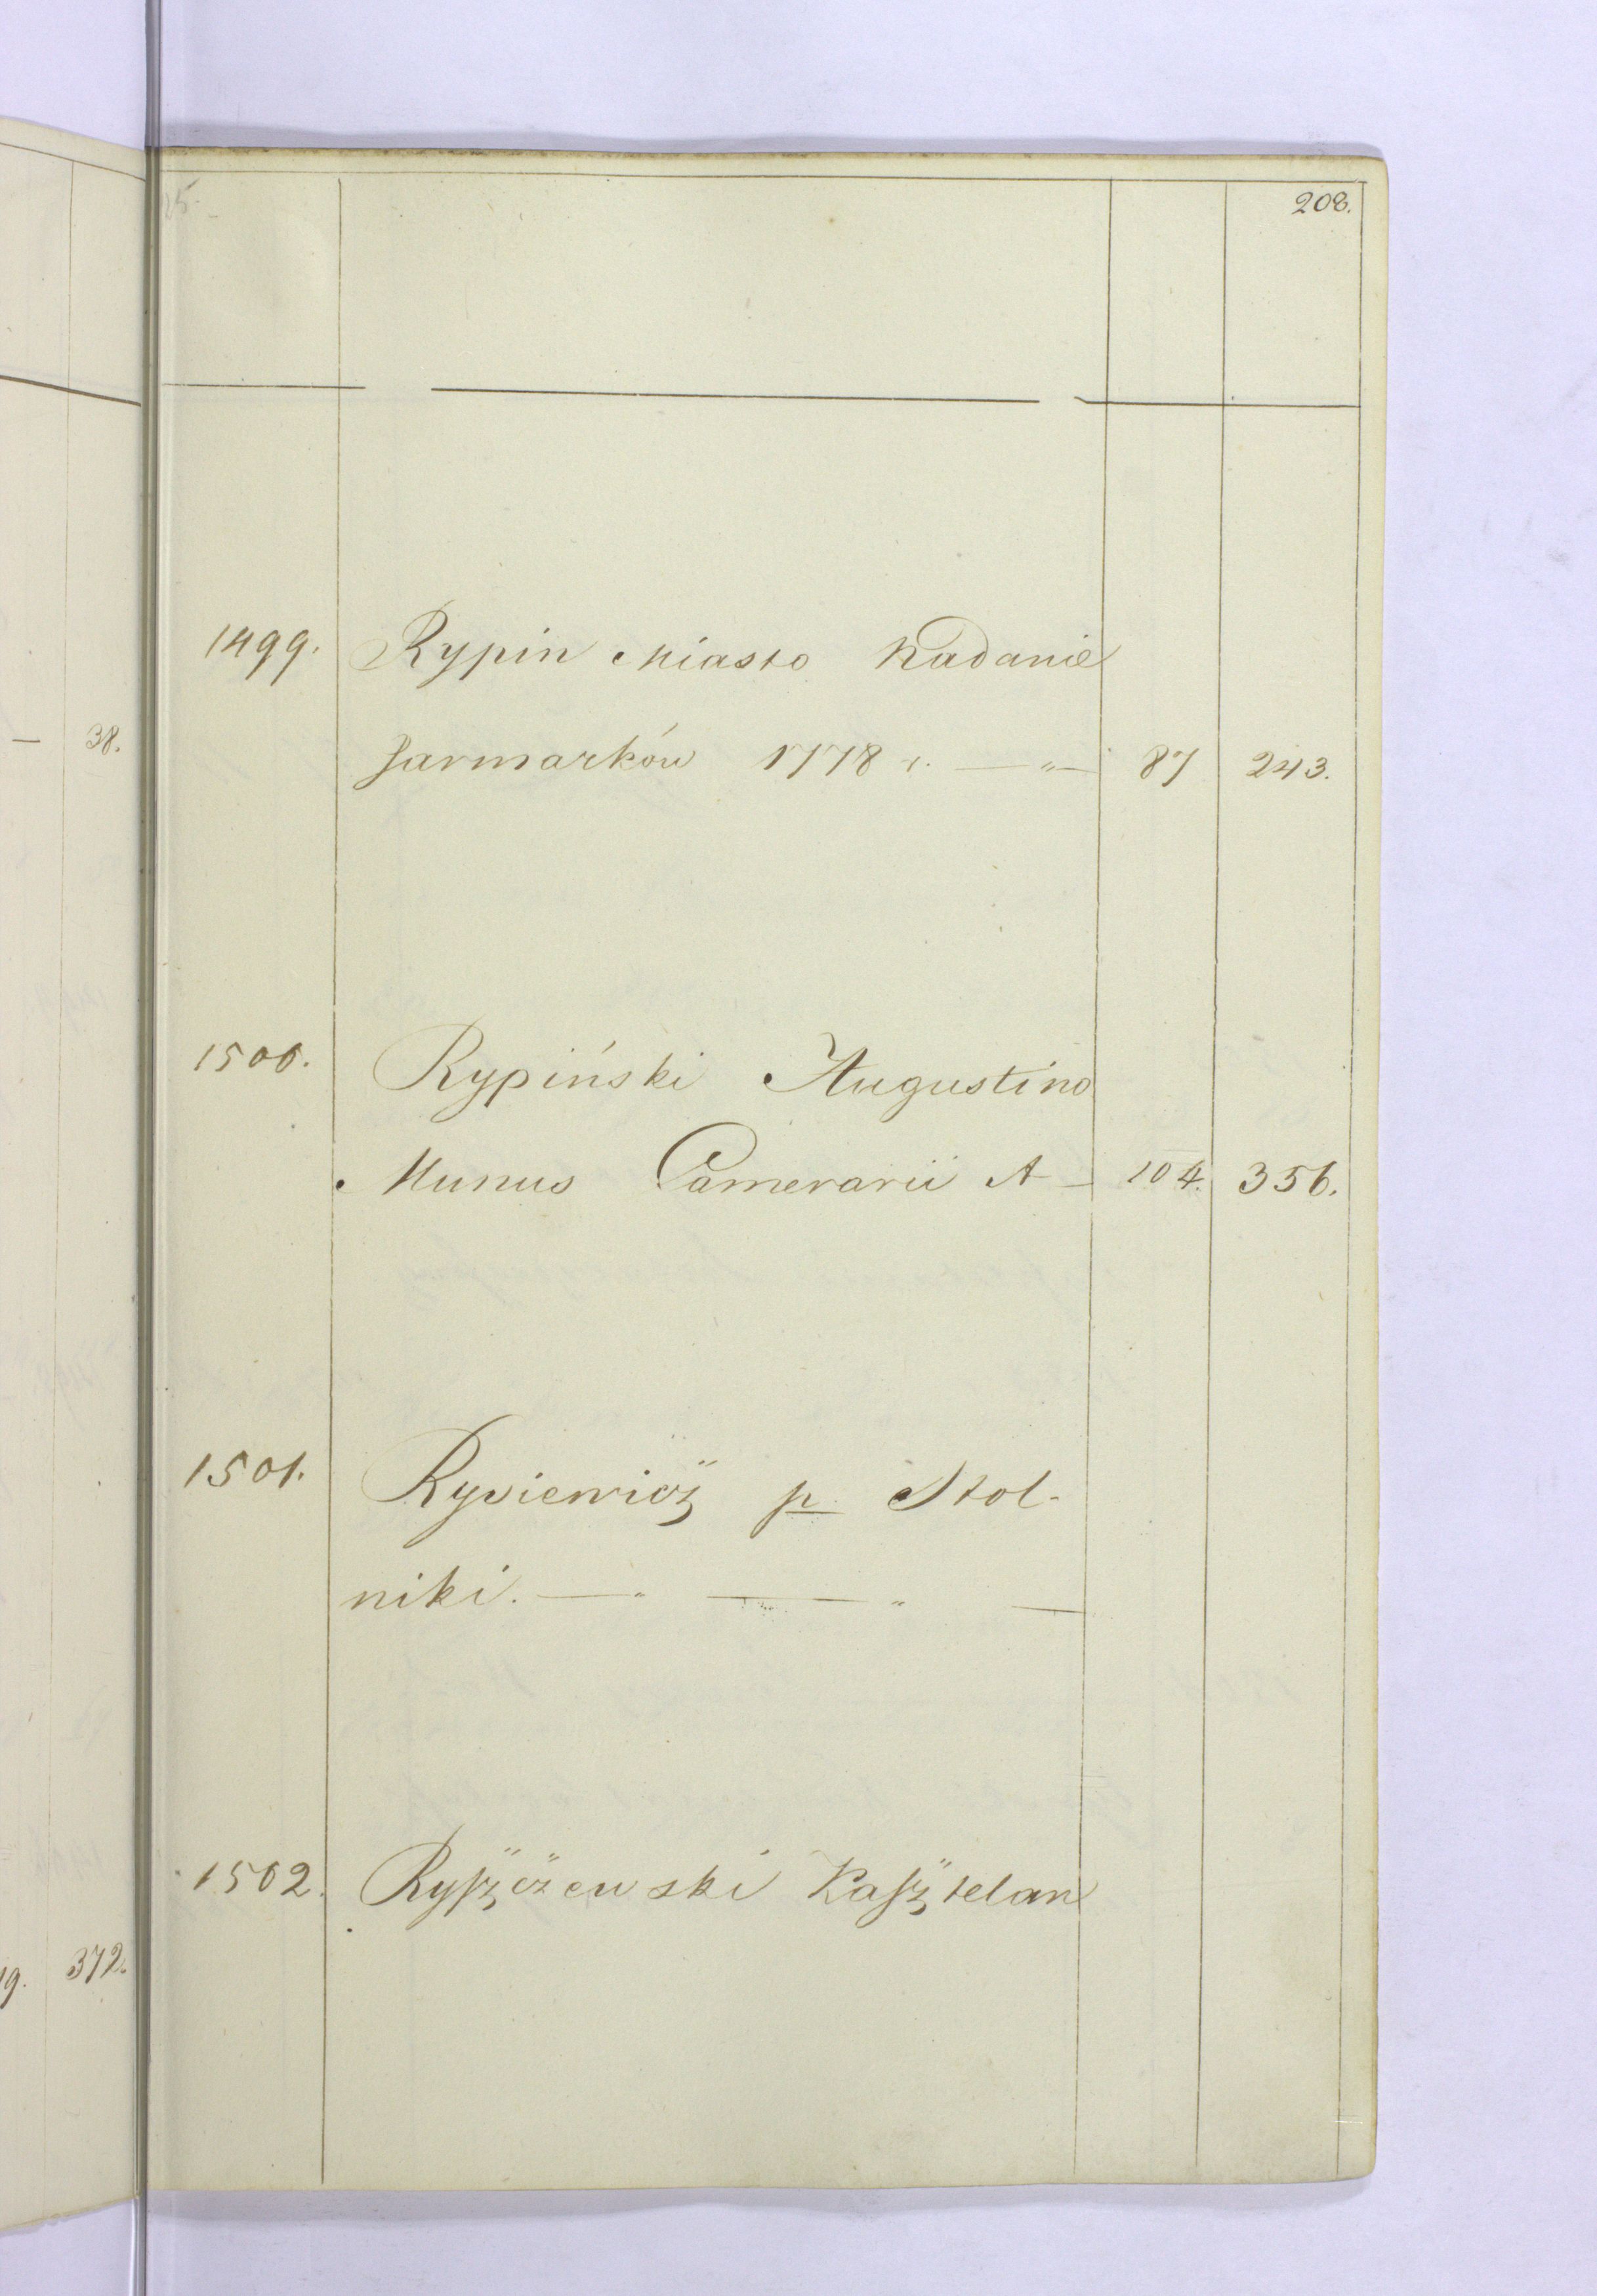 208.
1499. Rypin Miasto Nadanie
Jarmarków 1778 r. — " — 87 243.
— 38.
1500. Rypiński Augustino
Munus Camerarii A — 104. 356.
1501. Rysiewicz p. Stol-
niki. — " — — " —
1502. Ryszczewski Kasztelan
19. 372.